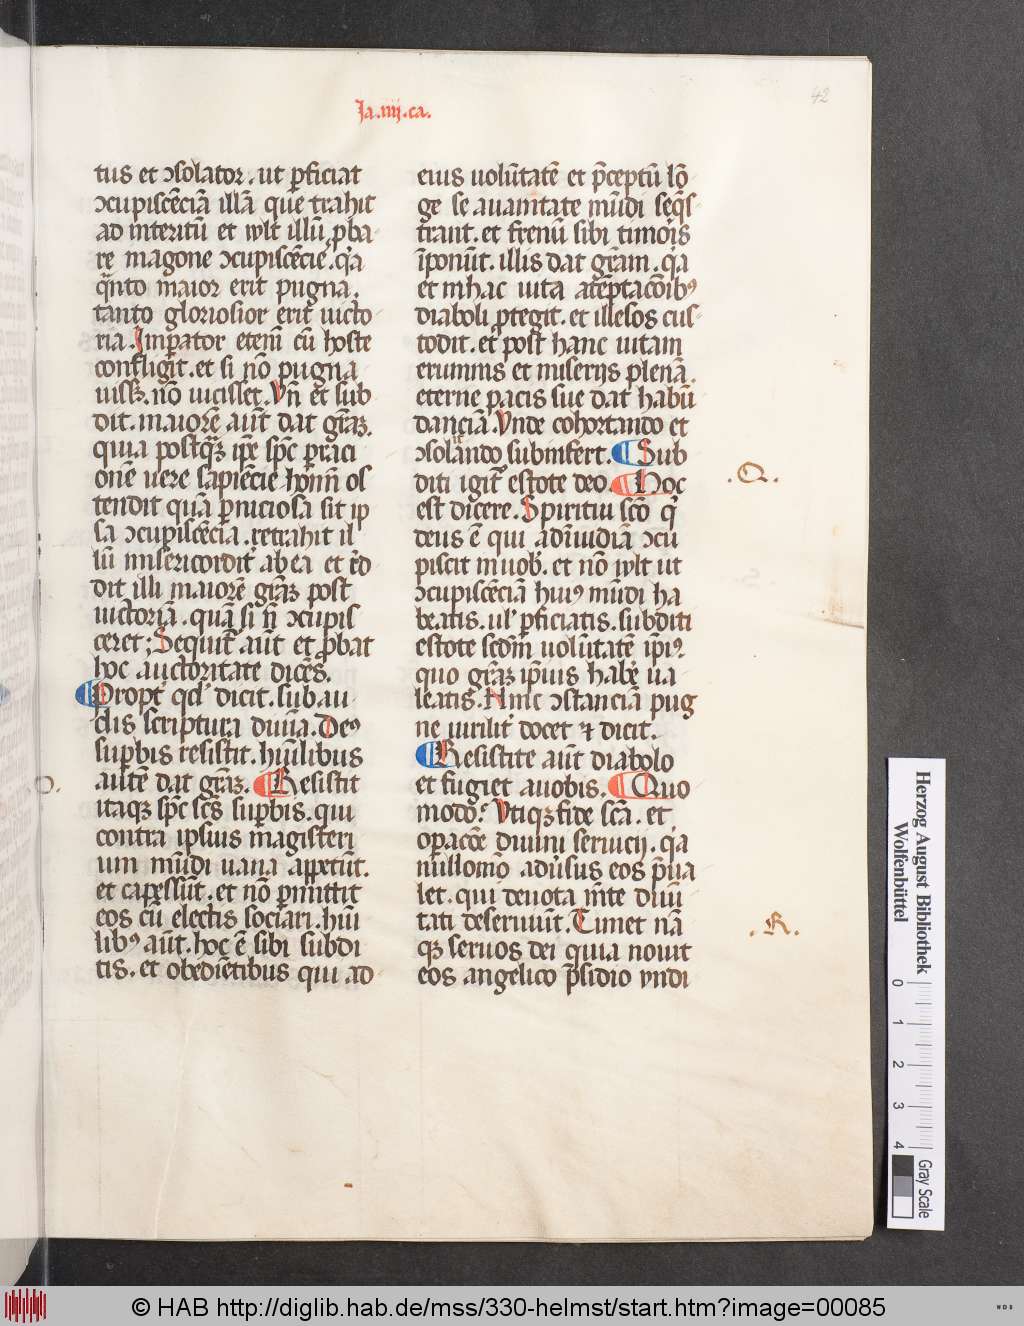 42
Ja.iiij.ca.
tus et ↄsolator. ut ꝑficiat
ↄcupiscēciā illā que trahit
ad interitū et wlt illū ꝓba
re magone ↄcupiscēcie. qͥa
qͣnto maior erit pugna.
tanto gloriosior erit uicto
ria. Imꝑator etenī cū hoste
confligit. et si nō pugna
uissꝫ. nō uicisset. Vn̄ et sub
dit. maiorē aūt dat gr̄aꝫ.
quia postqͣꝫ ip̄e sp̄c p̄raci
onē uere sapiēcie hoīm os
tendit quā ꝑniciosa sit ip
sa ↄcupiscēcia. retrahit il
lū misericordit̉ ab ea et r̄d
dit illi maiorē gr̄aꝫ post
uictoriā. quā si n̄ ↄcupis
ceret; Sequit̉ aūt et ꝓbat
hoc auctoritate dicēs.
Propt̉ qd̓ dicit. sub au
dis scriptura diuīa. Deꝰ
suꝑbis resistit. hūilibus
autē dat gr̄aꝫ. Resistit
itaqꝫ sp̄c sc̄s suꝑbis. qui
contra ipsius magisteri
um mūdi uana appetūt.
et capessūt. et nō ꝑmittit
eos cū electis sociari. hūi
libꝰ aūt. hoc ē sibi subdi
tis. et obediētibus qui ad
eius uolūtatē et p̄ceptū lō
ge se auanitate mūdi seqͥs
trant. et frenū sibi timoris
īponūt. illis dat gr̄am. qͥa
et inhac uita atēptacōibꝰ
diaboli ꝓtegit. et illesos cus
todit. et post hanc uitam
erumnis et miserijs plenā.
eterne pacis sue dat habū
danciā. Vnde cohortando et
ↄsolando subinfert. Sub
diti igit̉ estote deo. Hoc
est dicere. Spiritui sc̄o qͥ
deus ē qui adīuidiā ↄcu
piscit inuob̉. et nō wlt ut
ↄcupiscēciā huiꝰ mūdi ha
beatis. ul̓ ꝑficiatis. subditi
estote scd̄m uolūtatē ip̄iꝰ
quo gr̄aꝫ ip̄ius hab̉e ua
leatis. Hinc ↄstanciā pug
ne uirilit̉ docet ⁊ dicit.
Resistite aūt diabolo
et fugiet auobis. Quo
modo? Vtiqꝫ fide sc̄a. et
oꝑacōe diuini seruicij. qͥa
nullomō adūsus eos p̄ua
let. qui deuota mēte diuī
tati deseruiūt. Timet nā
qꝫ seruos dei quia nouit
eos angelico p̄sidio undi
.Q.
.R.
O.
Herzog August Bibliothek
Wolfenbüttel
0 1 2 3 4
Gray Scale
© HAB http://diglib.hab.de/mss/330-helmst/start.htm?image=00085